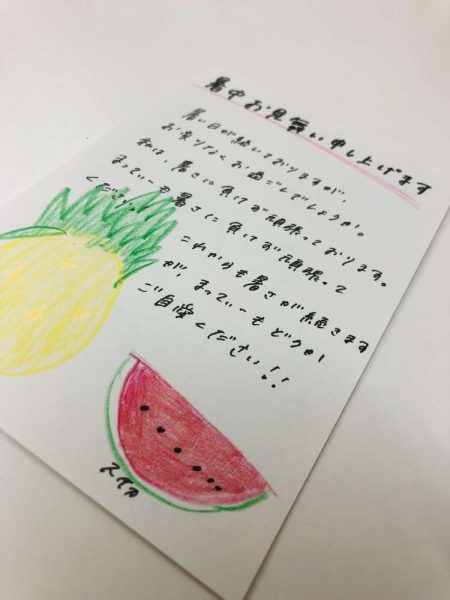 暑中お見舞い申し上げます
暑い日が続いておりますが、
お変りなくお過ごしでしょうか。
私は、暑さに負けず頑張っております。
まっでぃーも暑さに負けずお頑張って
ください。
これからも暑さが続きます
が まっでぃーもどうか
ご自愛ください!!
スイカ